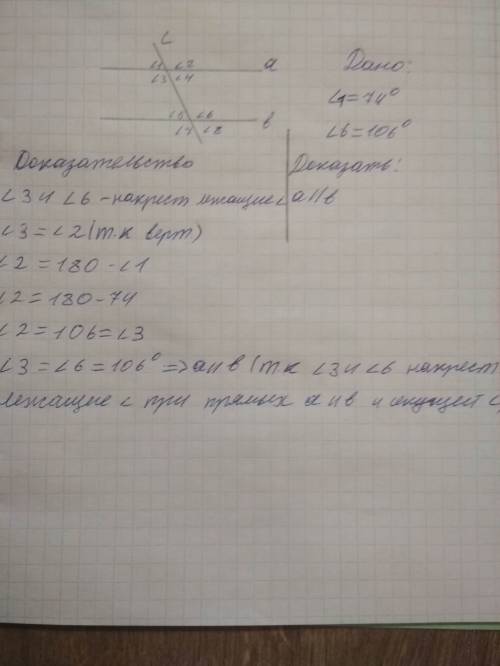 c
∠1 ∠2 a
∠3 ∠4
∠5 ∠6 в
∠7 ∠8
Дано:
∠1=74°
∠6=106°
Доказать:
a∥в
Доказательство
∠3 и ∠6 - накрест лежащие ∠
∠3=∠2 (т.к верт)
∠2=180-∠1
∠2=180-74
∠2=106=∠3
∠3=∠6=106° =>a∥в (т.к ∠3 и ∠6 накрест
лежащие ∠ при прямых a и в и секущей c